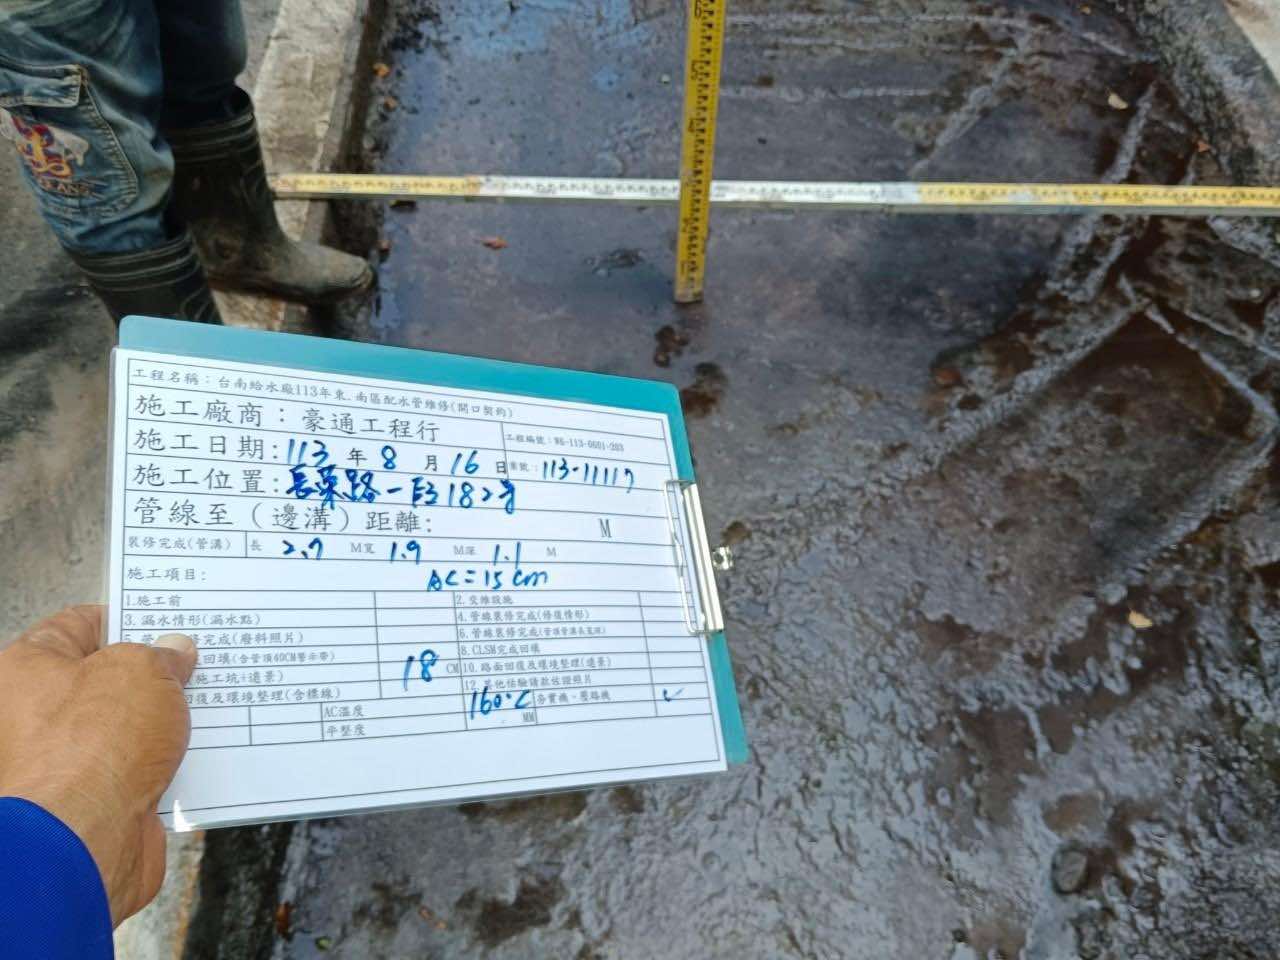 工程名稱：台南給水廠113年東.南區配水管維修(開口契約)
施工廠商：豪通工程行
工程編號：W6-113-0601-203
施工日期:113年8月16日
案號：113-11117
施工位置:長榮路一段182号
管線至（邊溝）距離: M
裝修完成(管溝) 長 2.7 M寬 1.9 M深 1.1 M
施工項目: AC=15cm
1.施工前 2.交維設施
3.漏水情形(漏水點) 4.管線裝修完成(修復情形)
修完成(廢料照片) 6.管線裝修完成(管頂管溝長寬深)
回填(含管頂40CM警示帶) 8.CLSM完成回填
施工坑+遠景) 18 CM 10.路面回復及環境整理(遠景)
回復及環境整理(含標線) 12.其他估驗請款佐證照片
AC溫度 160°C 夯實機、壓路機 ✓
平整度 MM